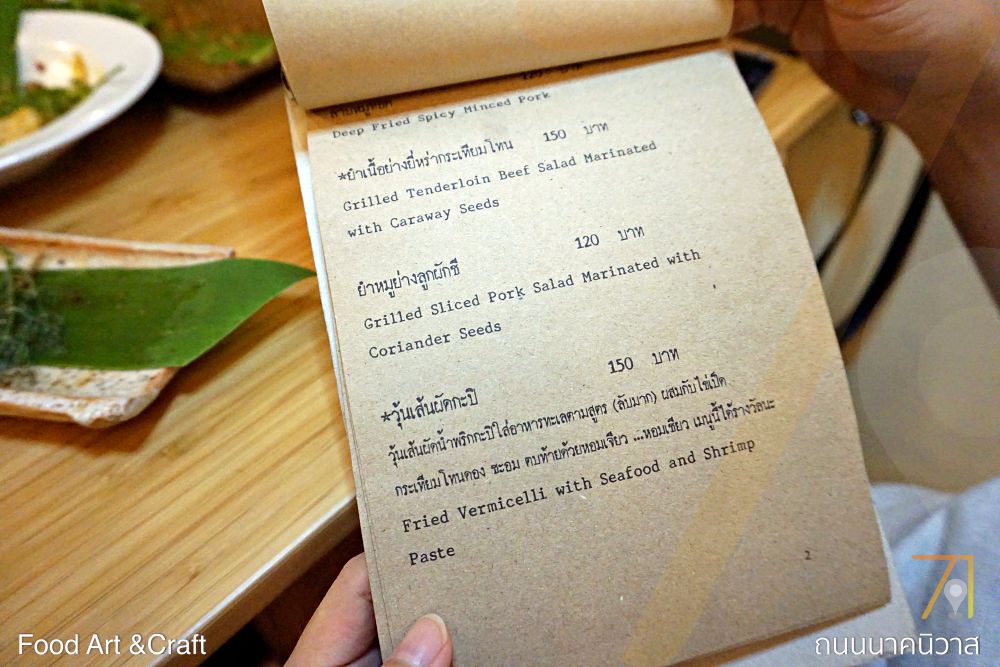 Deep Fried Spicy Minced Pork
*ยำเนื้อย่างยี่หร่ากระเทียมโทน 150 บาท
Grilled Tenderloin Beef Salad Marinated
with Caraway Seeds
ยำหมูย่างลูกผักชี 120 บาท
Grilled Sliced Pork Salad Marinated with
Coriander Seeds
*วุ้นเส้นผัดกะปิ 150 บาท
วุ้นเส้นผัดน้ำพริกกะปิใส่อาหารทะเลตามสูตร (ลับมาก) ผสมกับไข่เป็ด
กระเทียมโทนดอง ชะอม ตบท้ายด้วยหอมเจียว ...หอมเชียว เมนูนี้ได้รางวัลนะ
Fried Vermicelli with Seafood and Shrimp
Paste
2
71
Food Art &Craft
ถนนนาคนิวาส